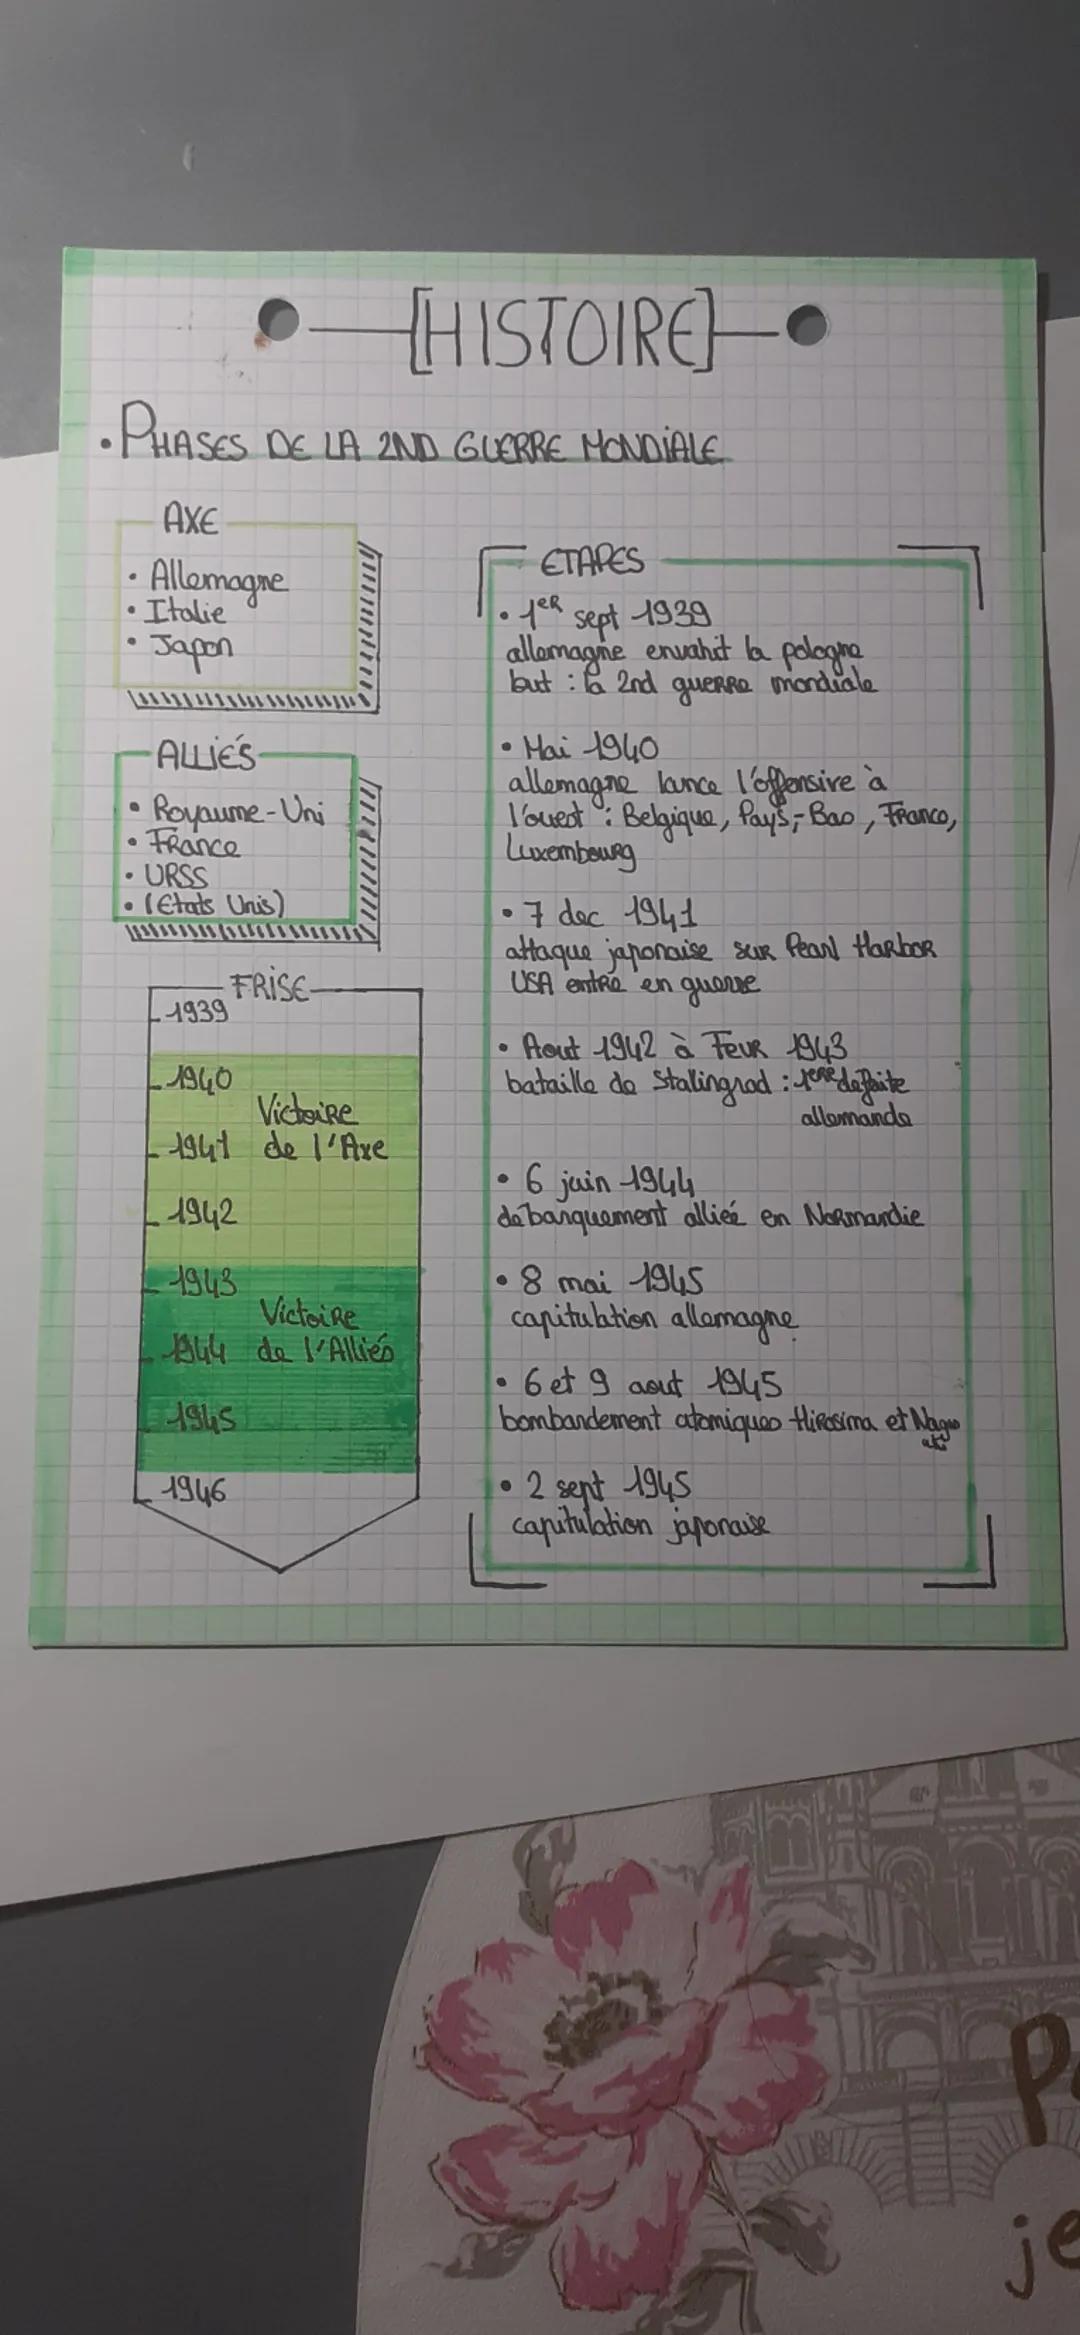 [HISTOIRE]
• PHASES DE LA 2ND GUERRE MONDIALE
AXE
• Allemagne
• Italie
• Japon
ALLIÉS
• Royaume-Uni
• France
• URSS
• (Etats Unis)
FRISE
1939
1940
Victoire
1941 de l'Axe
1942
1943
Victoire
1944 de l'Alliés
1945
1946
ETAPES
• 1ER sept 1939
allemagne envahit la pologne
but : la 2nd guerre mondiale
• Mai 1940
allemagne lance l'offensive à
l'ouest : Belgique, Pays-Bas, France,
Luxembourg
• 7 dec 1941
attaque japonaise sur Pearl Harbor
USA entre en guerre
• Aout 1942 à Fevr 1943
bataille de Stalingrad : 1ere defaite
allemande
• 6 juin 1944
debarquement allieé en Normandie
• 8 mai 1945
capitulation allemagne
• 6 et 9 aout 1945
bombardement atomiques Hirosima et Nagas
aki
• 2 sept 1945
capitulation japonaise
P
je